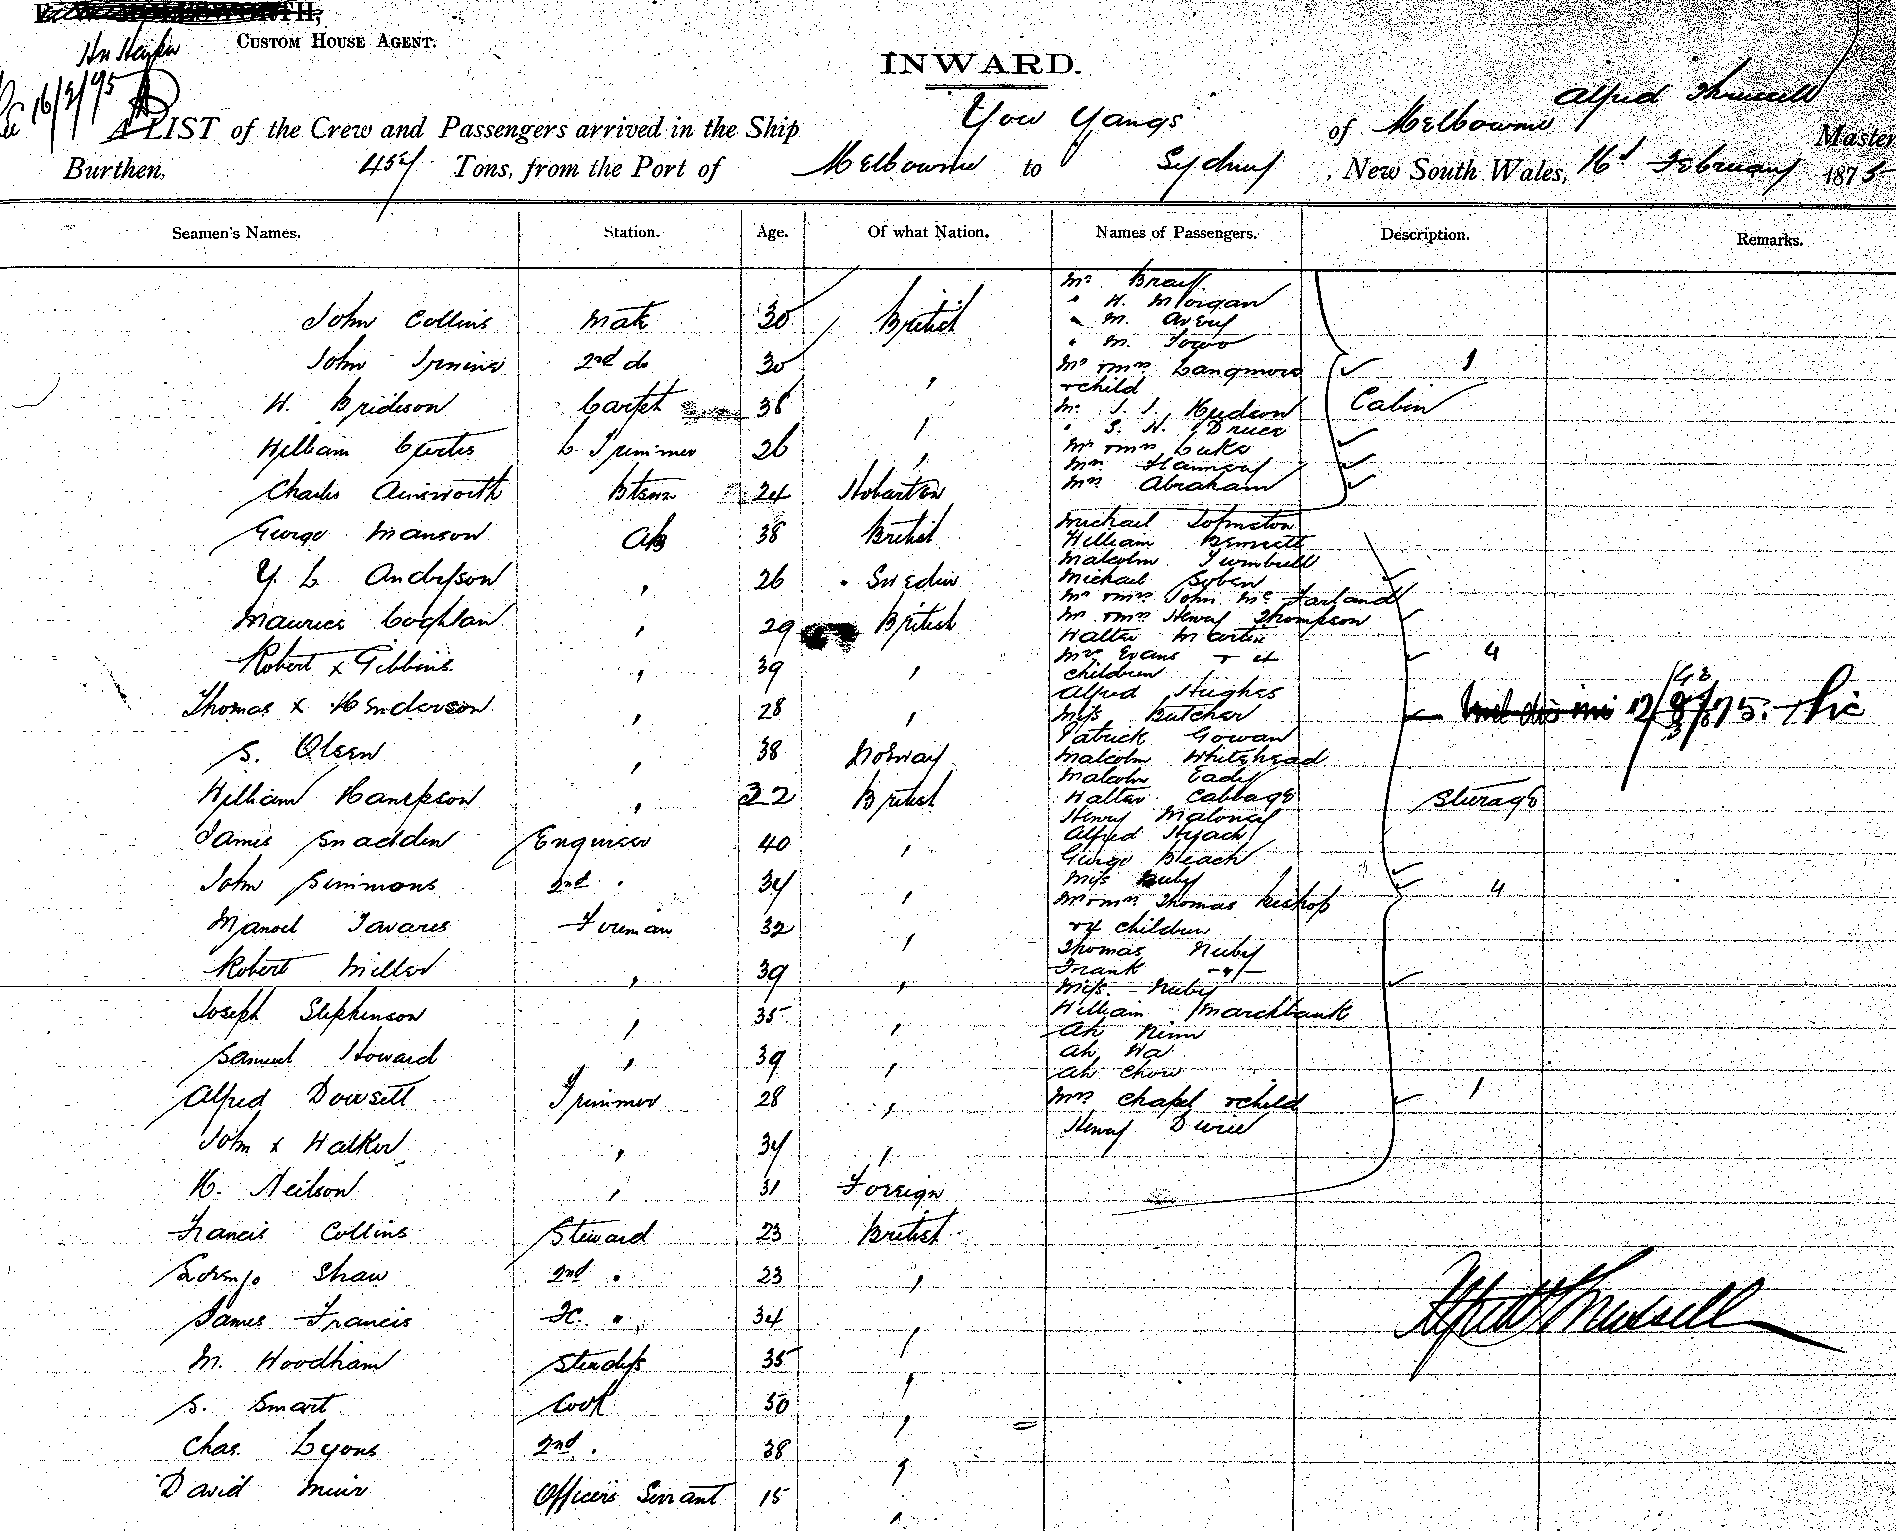 CUSTOM HOUSE AGENT.
INWARD.
Alfred Thrussell
A LIST of the Crew and Passengers arrived in the Ship You Yangs of Melbourne Master
Burthen, 457 Tons, from the Port of Melbourne to Sydney, New South Wales, 16th February 1875
Seamen's Names. Station. Age. Of what Nation. Names of Passengers. Description. Remarks.
John Collins Mate 30 British
John 2nd do 30 "
H. Brideson Carpt 38 "
William Curtis L. Trimmer 26 "
Charles Ainsworth 24 Hobarton
George Manson AB 38 British
Y. L. Anderson " 26 Sweden
Maurice Coghlan " 29 British
Robert x Gibbins " 39 "
Thomas x Henderson " 28 "
S. Olsen " 38 Norway
William Hampson " 32 British
James Snadden Engineer 40 "
John Simmons 2nd " 34 "
Manoel Tavares Fireman 32 "
Robert Miller " 39 "
Joseph Stephenson " 35 "
Samuel Howard " 39 "
Alfred Dowsett Trimmer 28 "
John x Walker " 34 "
H. Neilson " 31 Foreign
Francis Collins Steward 23 British
Lorenzo Shaw 2nd " 23 "
James Francis " 34 "
M. Woodham Stewdss 35 "
S. Smart Cook 30 "
Chas. Lyons 2nd " 38 "
David Muir Officers Servant 15 "
Mr
" H. Morgan
" M. Avery
" M.
Mr & Mrs Langmore
& child
Mr J. J. Hudson
" S. H. Druce
Mr & Mrs Luke
Mrs
Mrs Abraham
1
Cabin
Michael Johnston
William Bennett
Malcolm Turnbull
Michael
Mr & Mrs John McFarland
Mr & Mrs Henry Thompson
Walter Martin
Mrs Evans & 4
children
Alfred Hughes
Miss Butcher
Patrick Gowan
Malcolm Whitehead
Malcolm Eady
Walter Cabbage
Henry Maloney
Alfred Hyach
George Bleach
Miss Ruby
Mr & Mrs Thomas Bishop
& 4 children
Thomas Ruby
Frank -"-
Miss Ruby
William Marchbank
Ah
Ah Wa
Ah Chow
Mrs Chapel & child
Henry
4
Steerage
4
1
Alfred Thrussell